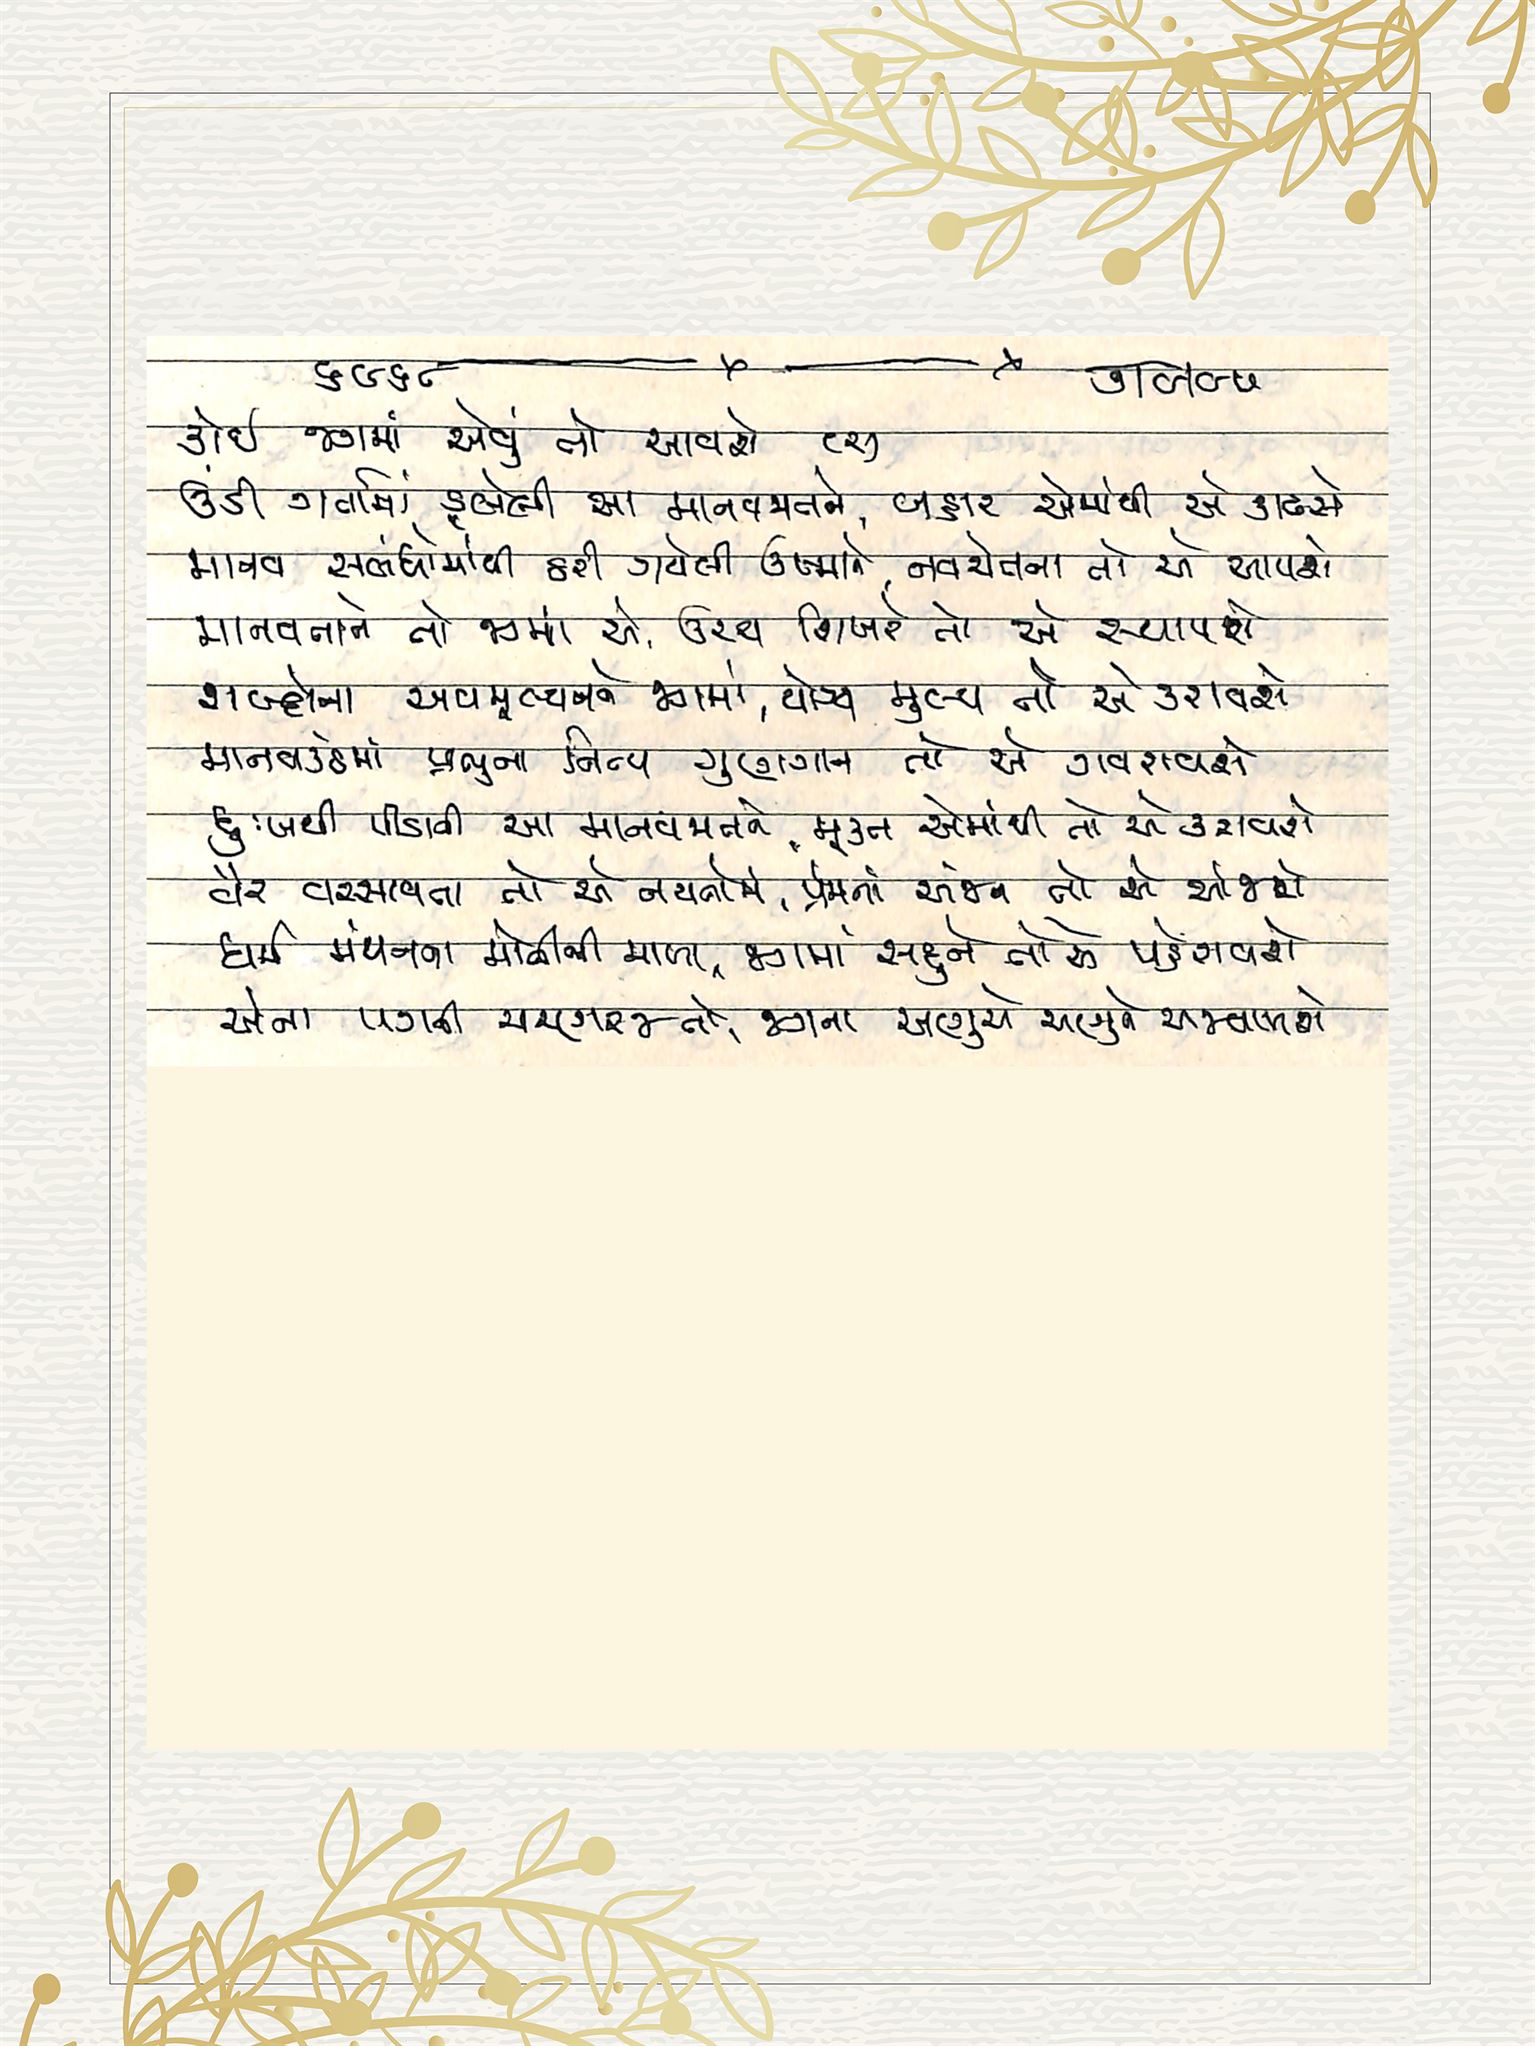 ૬૯૬૮ કાવ્ય
કોઈ જગમાં એવું તો આવશે (૨)
ઉંડી ગર્તામાં ડૂબેલી આ માનવજાતને, બહાર એમાંથી એ કાઢશે
માનવ સબંધોમાંથી ઠરી ગયેલી ઉષ્માને, નવચેતના તો એ આપશે
માનવતાને તો જગમાં એ, ઉચ્ચ શિખરે તો એ સ્થાપશે
શબ્દોના અવમૂલ્યનને જગમાં, યોગ્ય મુલ્ય તો એ કરાવશે
માનવકંઠમાં પ્રભુના નિત્ય ગુણગાન તો એ ગવરાવશે
દુઃખથી પીડાતી આ માનવજાતને, મૂક્ત એમાંથી તો એ કરાવશે
વૈર વરસાવતા તો એ નયનોમાં, પ્રેમનાં અંજન તો એ આંજશે
ધર્મ મંથનના મોતીની માળા, જગમાં સહુને તો એ પહેરાવશે
એના પગની ચરણરજ તો, જગના અણુએ અણુને અજવાળશે